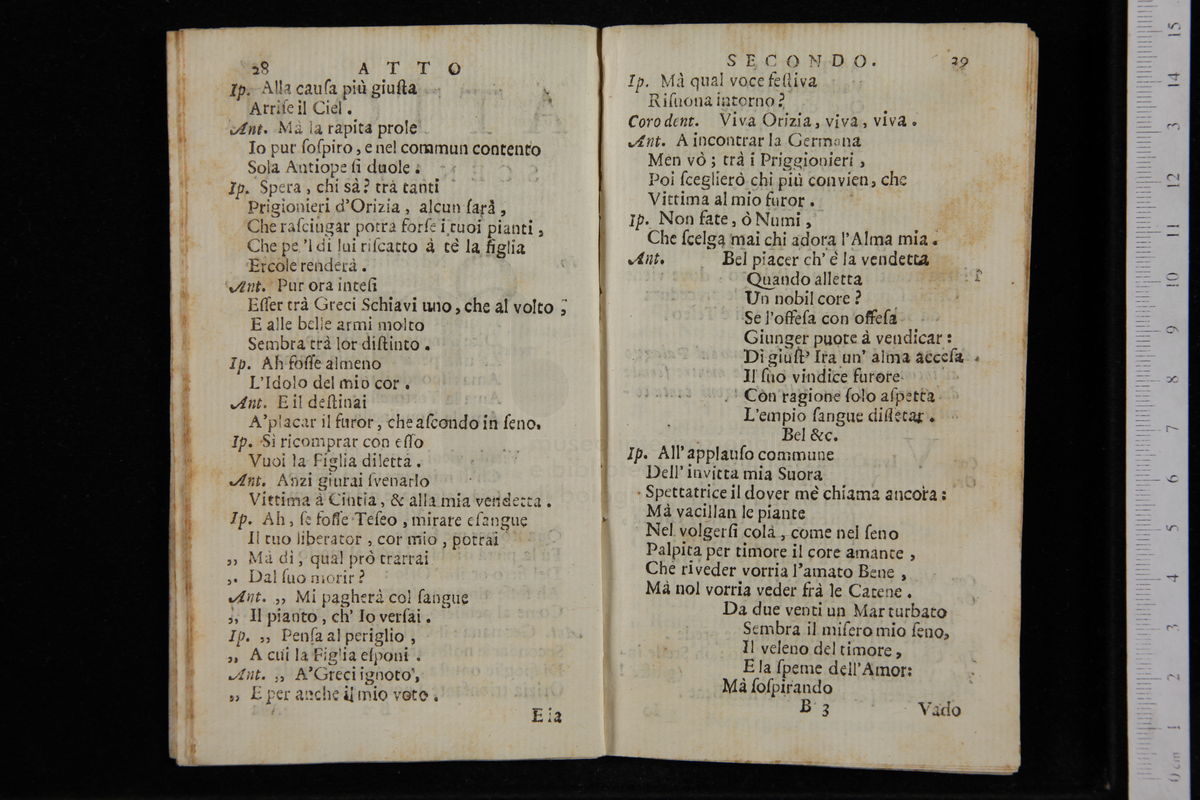 28 ATTO
Ip. Alla cauſa più giuſta
Arriſe il Ciel.
Ant. Mà la rapita prole
Io pur ſoſpiro, e nel commun contento
Sola Antiope ſi duole.
Ip. Spera, chi sà? trà tanti
Prigionieri d'Orizia, alcun ſarà,
Che raſciugar potrà forſe i tuoi pianti,
Che pe 'l di lui riſcatto à tè la figlia
Ercole renderà.
Ant. Pur ora inteſi
Eſſer trà Greci Schiavi uno, che al volto,
E alle belle armi molto
Sembra trà lor diſtinto.
Ip. Ah foſſe almeno
L'Idolo del mio cor.
Ant. E il deſtinai
A'placar il furor, che aſcondo in ſeno.
Ip. Sì ricomprar con eſſo
Vuoi la Figlia diletta.
Ant. Anzi giurai ſvenarlo
Vittima à Cintia, & alla mia vendetta.
Ip. Ah, ſe foſſe Teſeo, mirare eſangue
Il tuo liberator, cor mio, potrai
„ Mà dì, qual prò trarrai
„ Dal ſuo morir?
Ant. „ Mi pagherà col ſangue
„ Il pianto, ch' Io verſai.
Ip. „ Penſa al periglio,
„ A cui la Figlia eſponi.
Ant. „ A'Greci ignoto,
„ E per anche il mio voto.
Eia
SECONDO. 29
Ip. Mà qual voce feſtiva
Riſuona intorno?
Coro dent. Viva Orizia, viva, viva.
Ant. A incontrar la Germana
Men vò; trà i Priggionieri,
Poi ſceglierò chi più convien, che
Vittima al mio furor.
Ip. Non fate, ò Numi,
Che ſcelga mai chi adora l'Alma mia.
Ant. Bel piacer ch' è la vendetta
Quando alletta
Un nobil core?
Se l'offeſa con offeſa
Giunger puote à vendicar:
Di giuſt' Ira un' alma acceſa
Il ſuo vindice furore
Con ragione ſolo aſpetta
L'empio ſangue diſſetar.
Bel &c.
Ip. All'applauſo commune
Dell' invitta mia Suora
Spettatrice il dover mè chiama ancora:
Mà vacillan le piante
Nel volgerſi colà, come nel ſeno
Palpita per timore il core amante,
Che riveder vorria l'amato Bene,
Mà nol vorria veder frà le Catene.
Da due venti un Mar turbato
Sembra il miſero mio ſeno,
Il veleno del timore,
E la ſpeme dell'Amor:
Mà ſoſpirando
B 3 Vado